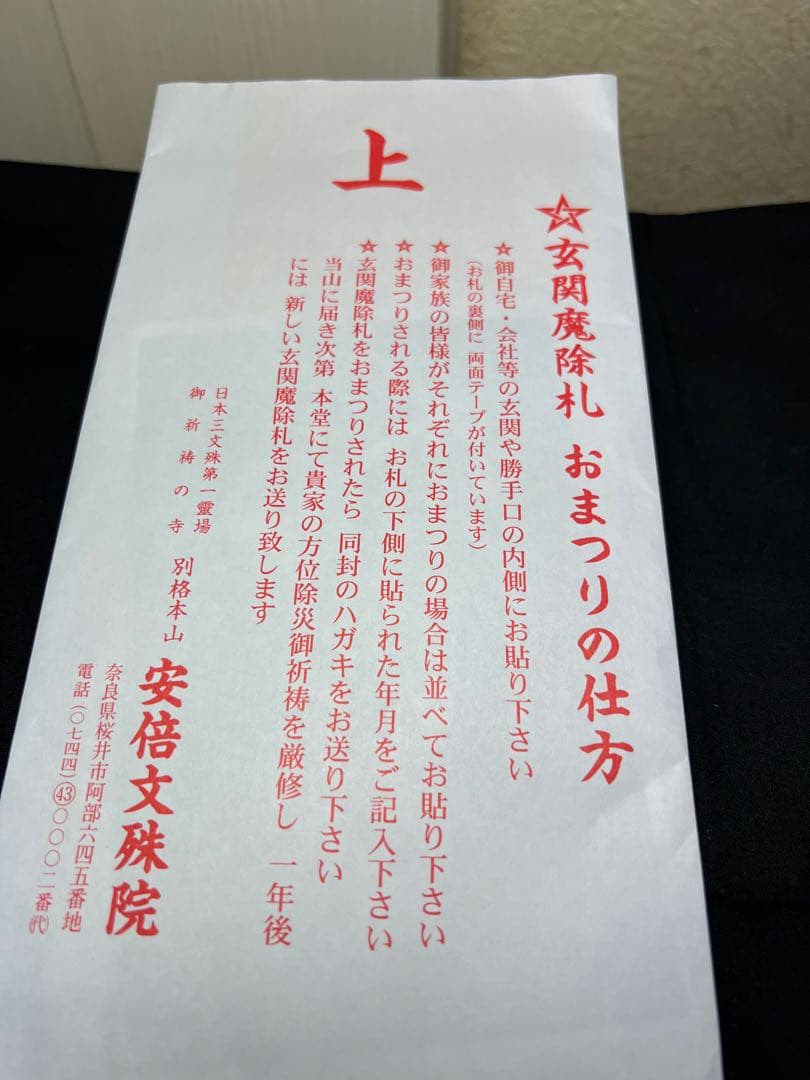 上
☆玄関魔除札 おまつりの仕方
★御自宅・会社等の玄関や勝手口の内側にお貼り下さい
(お札の裏側に 両面テープが付いています)
★御家族の皆様がそれぞれにおまつりの場合は並べてお貼り下さい
★おまつりされる際には お札の下側に貼られた年月をご記入下さい
★玄関魔除札をおまつりされたら 同封のハガキをお送り下さい
当山に届き次第 本堂にて貴家の方位除災御祈祷を厳修し 一年後
には 新しい玄関魔除札をお送り致します
日本三文殊第一霊場
御祈祷の寺
別格本山
安倍文殊院
奈良県桜井市阿部六四五番地
電話(〇七四四)㊸〇〇〇二番㈹